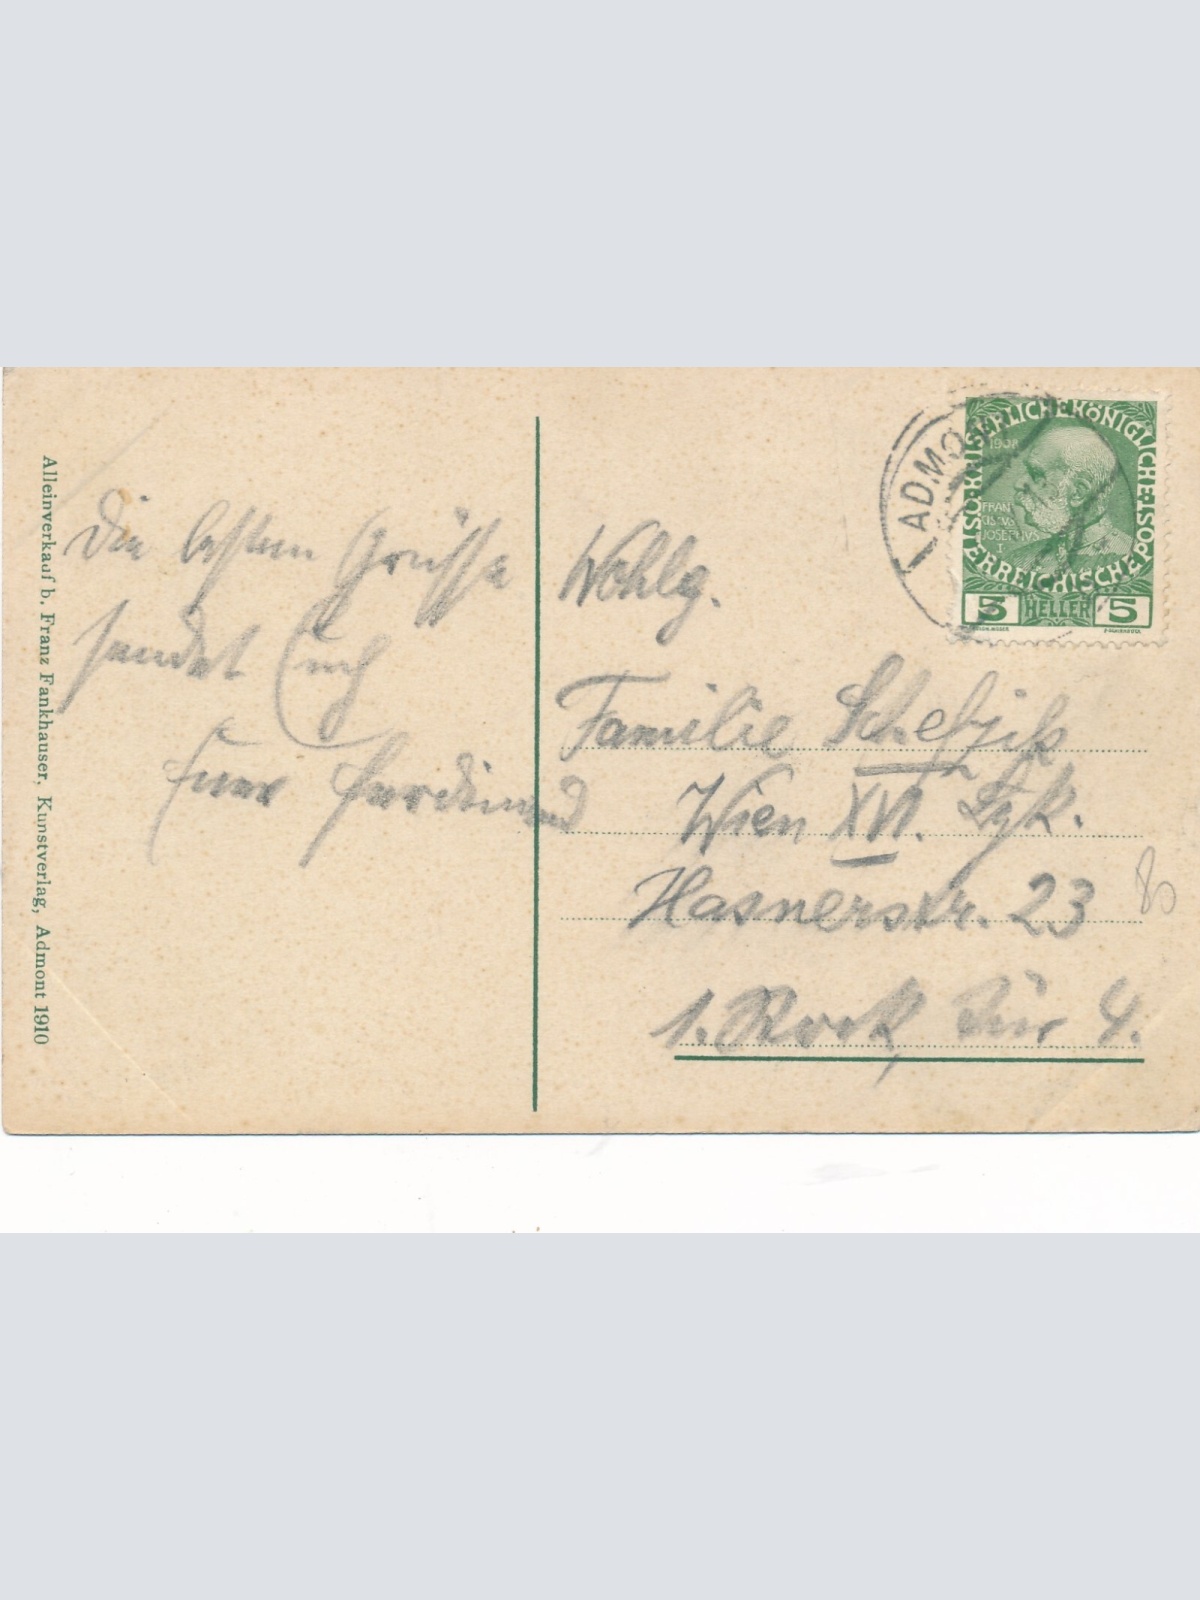 Alleinverkauf b. Franz Fankhauser, Kunstverlag, Admont 1910
Die besten Grüsse
sendet Euch
Euer Ferdinand
ADMO
ÖSTERREICHISCHE POST KAISERLICHE KÖNIGLICHE
1908
FRAN
CISCVS
JOSEPHVS
I
5 HELLER 5
Wohlg.
Familie
Wien XVI.
Hasnerstr. 23
1. Stock, Tür 4.
80